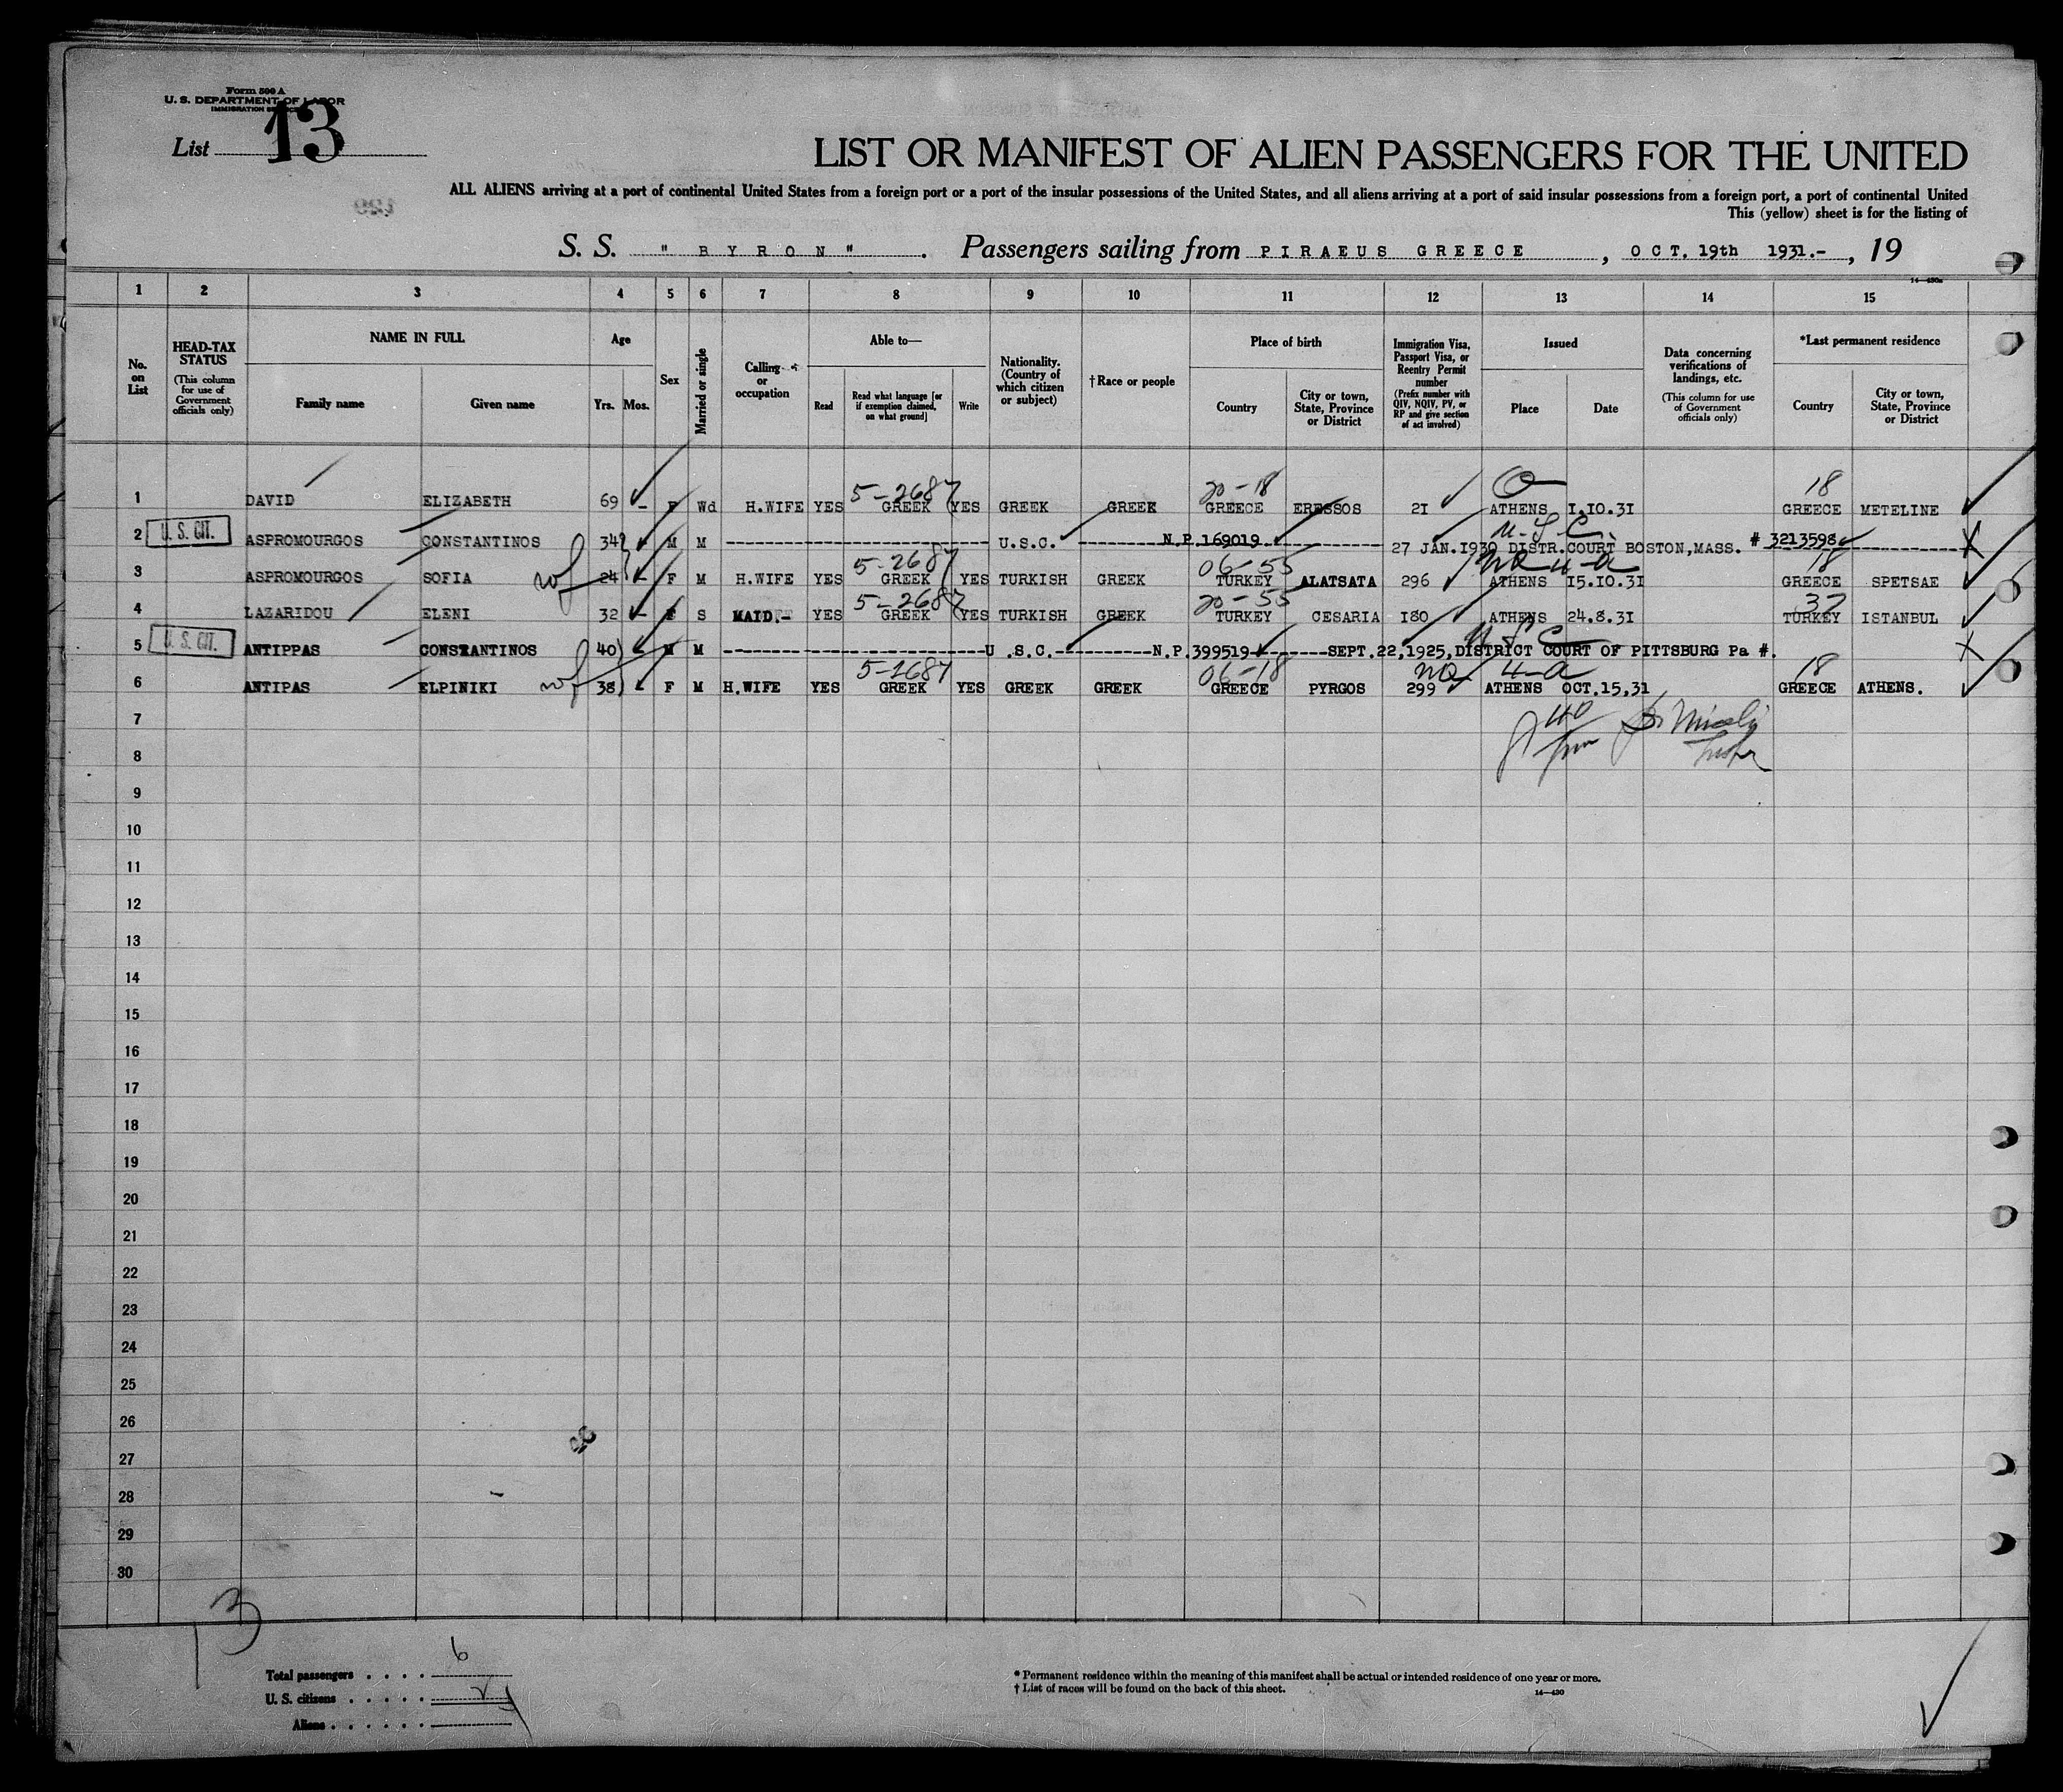 Form 500 A
U. S. DEPARTMENT OF LABOR
List 13
LIST OR MANIFEST OF ALIEN PASSENGERS FOR THE UNITED
ALL ALIENS arriving at a port of continental United States from a foreign port or a port of the insular possessions of the United States, and all aliens arriving at a port of said insular possessions from a foreign port, a port of continental United
This (yellow) sheet is for the listing of
S. S. " B Y R O N " . Passengers sailing from P I R A E U S G R E E C E , O C T. 19th 1931.- , 19
1 2 3 4 5 6 7 8 9 10 11 12 13 14 15
No. on List
HEAD-TAX STATUS (This column for use of Government officials only)
NAME IN FULL
Family name Given name
Age
Yrs. Mos.
Sex
Married or single
Calling or occupation
Able to—
Read
Read what language [or if exemption claimed, on what ground]
Write
Nationality. (Country of which citizen or subject)
† Race or people
Place of birth
Country
City or town, State, Province or District
Immigration Visa, Passport Visa, or Reentry Permit number (Prefix number with QIV, NQIV, PV, or RP and give section of act involved)
Issued
Place Date
Data concerning verifications of landings, etc. (This column for use of Government officials only)
*Last permanent residence
Country
City or town, State, Province or District
5-2687 20-18 18
1 DAVID ELIZABETH 69 - F Wd H.WIFE YES GREEK YES GREEK GREEK GREECE ERESSOS 2I ATHENS I.IO.3I GREECE METELINE
U. S. C.
2 U. S. CIT. ASPROMOURGOS CONSTANTINOS 34 M M U.S.C. N.P.169019 27 JAN.I930 DISTR.COURT BOSTON,MASS. # 3213598
5-2687 06-55 NQ 4-a 18
3 ASPROMOURGOS SOFIA wf 24 F M H.WIFE YES GREEK YES TURKISH GREEK TURKEY ALATSATA 296 ATHENS I5.IO.3I GREECE SPETSAE
5-2687 20-55 37
4 LAZARIDOU ELENI 32 - F S MAID.- YES GREEK YES TURKISH GREEK TURKEY CESARIA I80 ATHENS 24.8.3I TURKEY ISTANBUL
U S C
5 U. S. CIT. ANTIPPAS CONSTANTINOS 40 M M U .S.C. N.P.399519 SEPT.22,1925,DISTRICT COURT OF PITTSBURG Pa #.
5-2687 06-18 NQ 4-a 18
6 ANTIPAS ELPINIKI wf 38 F M H.WIFE YES GREEK YES GREEK GREEK GREECE PYRGOS 299 ATHENS OCT.15,31 GREECE ATHENS.
7
8
9
10
11
12
13
14
15
16
17
18
19
20
21
22
23
24
25
26
27
28
29
30
13
Total passengers . . . . 6
U. S. citizens . . . . .
Aliens . . . . . .
* Permanent residence within the meaning of this manifest shall be actual or intended residence of one year or more.
† List of races will be found on the back of this sheet.
14—430